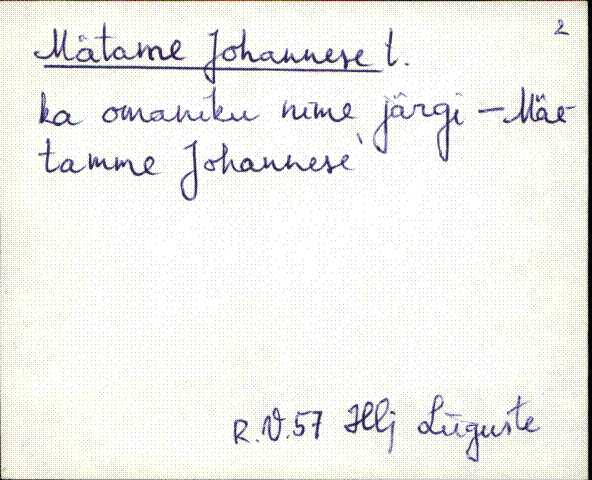 2
Mätame Johannese t.
ka omaniku nime järgi – Mäe-
tamme Johannese
R.V.57 Hlj Lüguste